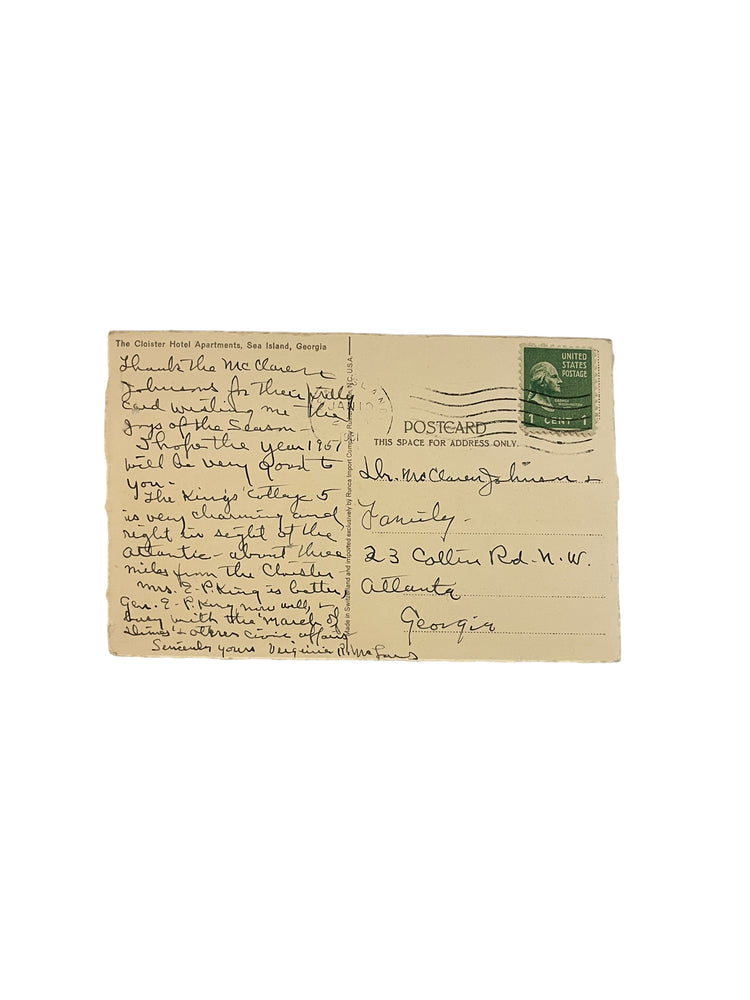 The Cloister Hotel Apartments, Sea Island, Georgia
Thank the McClaren
Johnsons for their
card wishing me the
joys of the Season -
I hope the year 1951
will be very good to
you -
The Kings' Cottage
is very charming and
right in sight of the
Atlantic - about three
miles from the Cloister -
Mrs. E. P. King is better
Gen. E. P. King now well, &
busy with the "March of
Dimes" & other civic affairs
Sincerely yours Virginia R.
Made in Switzerland and imported exclusively by Runca Import Company N.C. U.S.A.
JAN 10
UNITED
STATES
POSTAGE
1 CENT 1
POSTCARD
THIS SPACE FOR ADDRESS ONLY.
Dr. McClaren Johnson &
Family -
23 Collier Rd. N.W.
Atlanta
Georgia